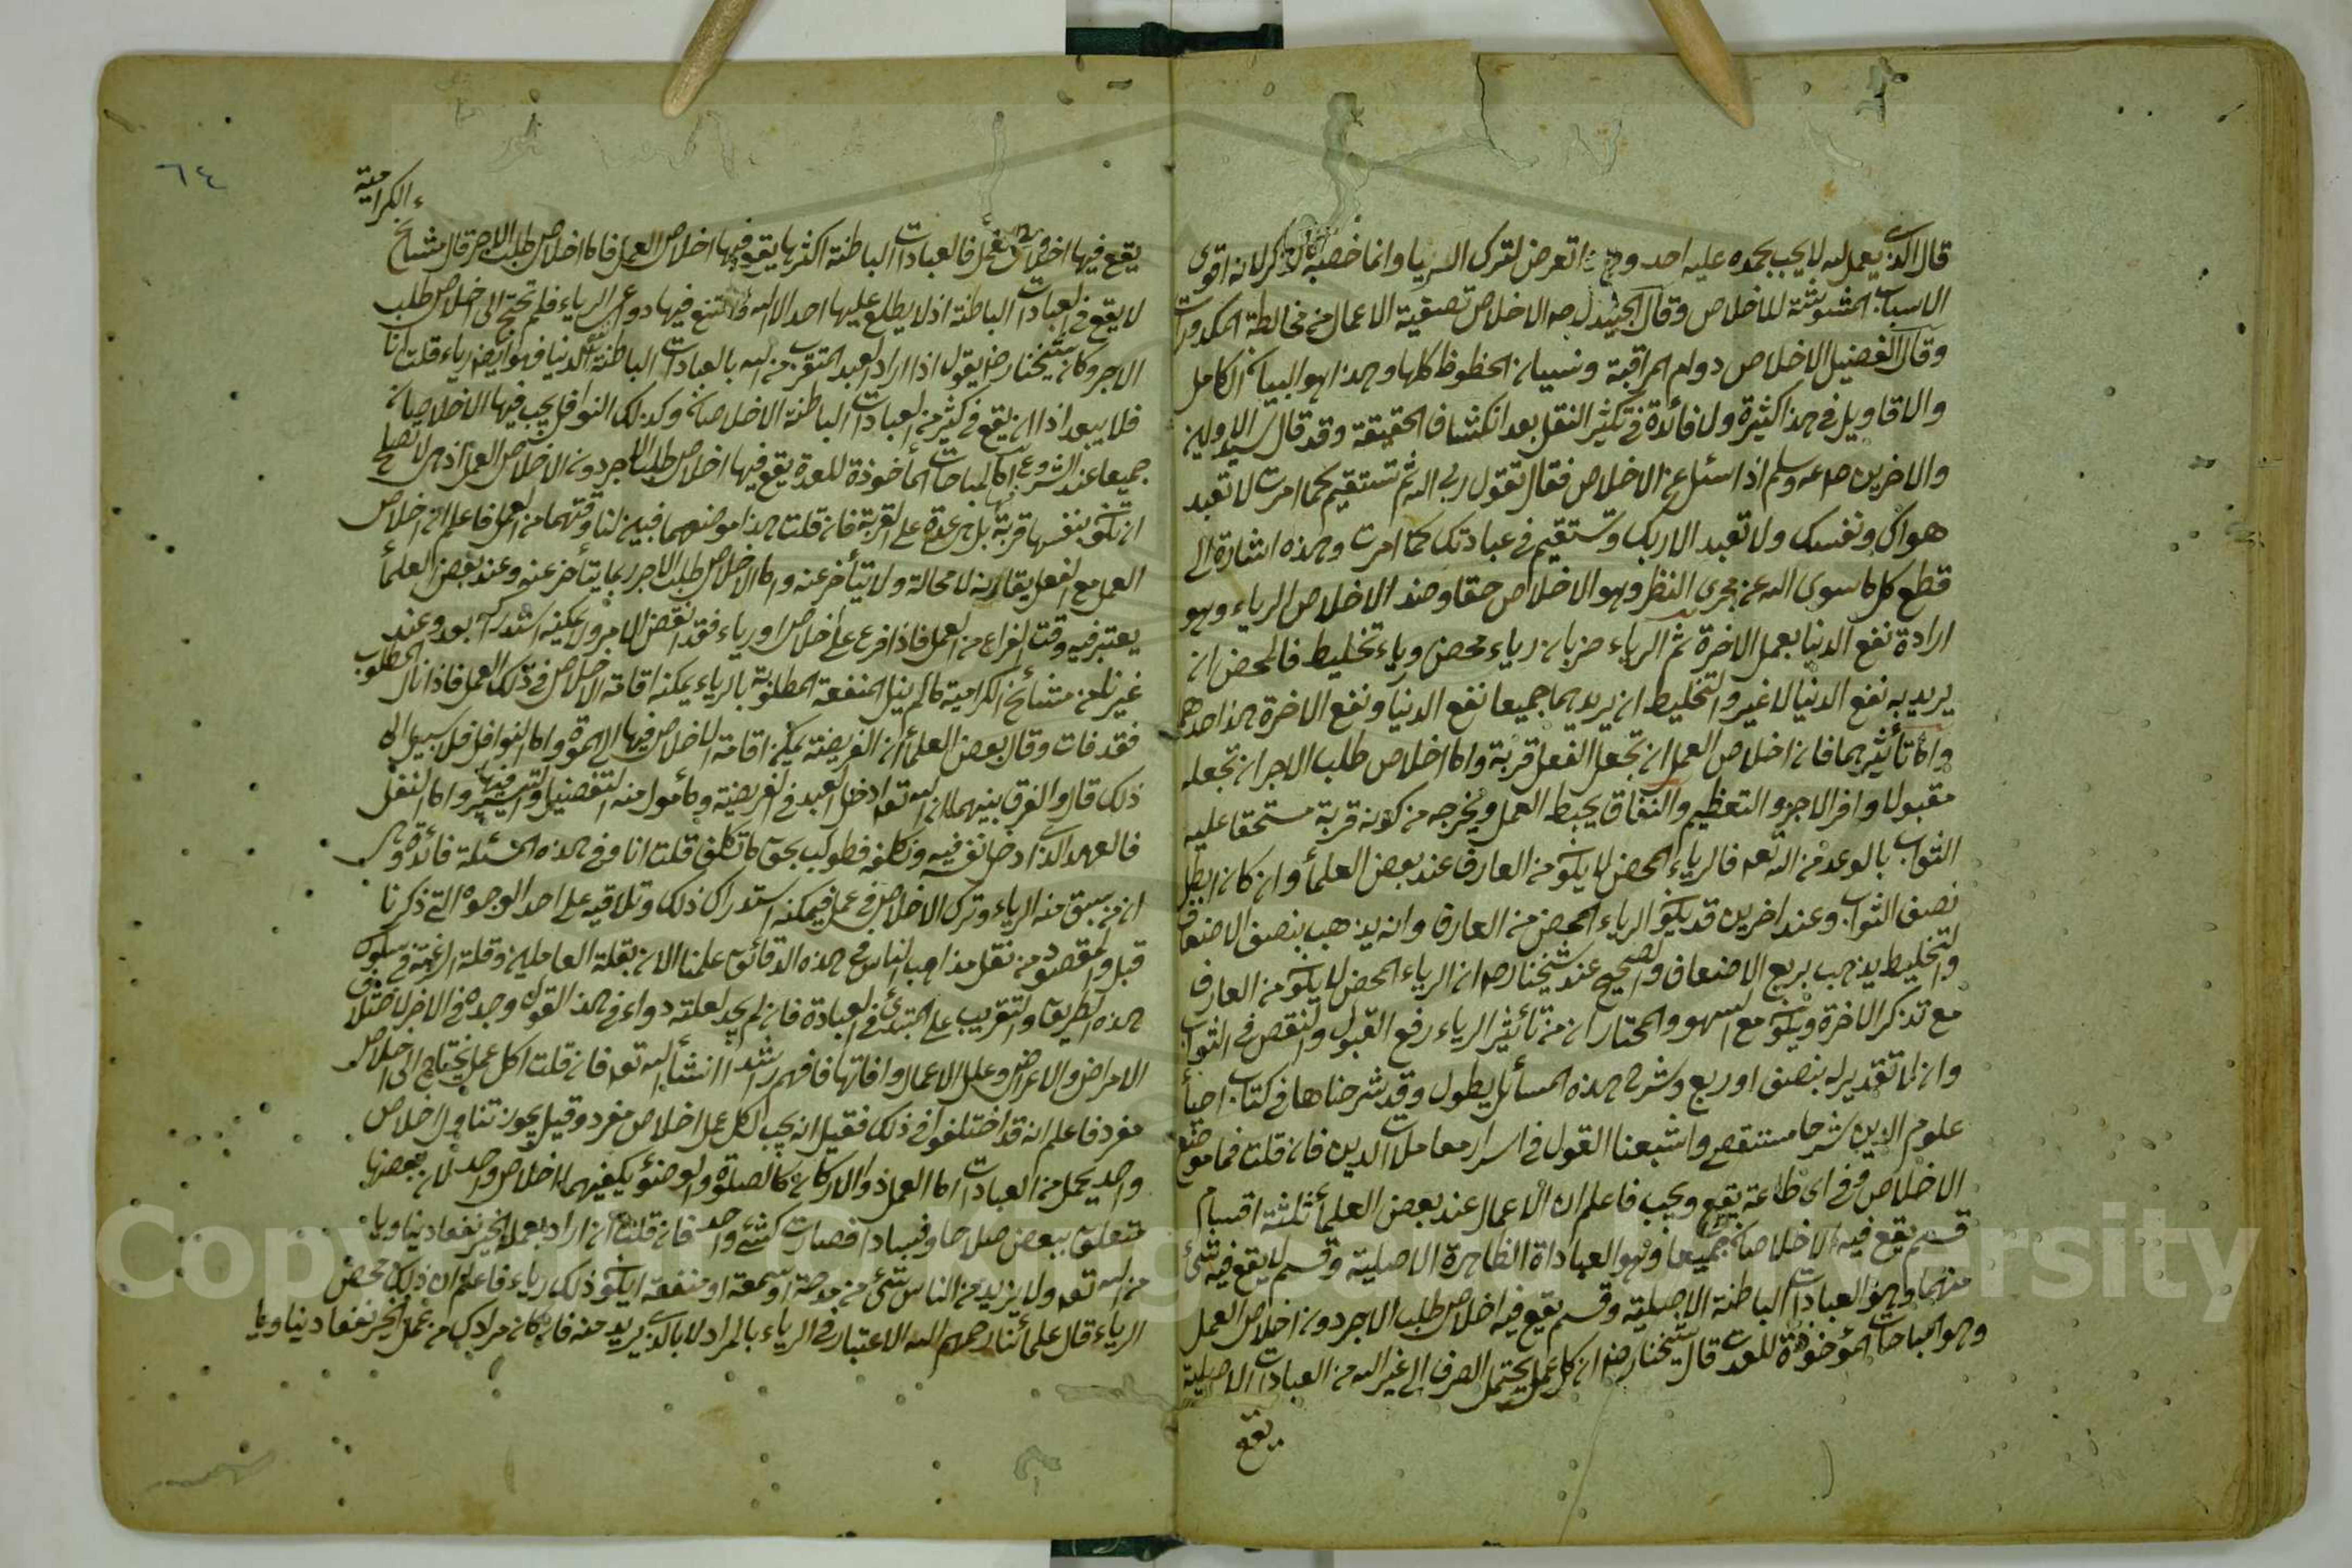 قال الذى يعمل لله لا يحب يحمده عليه احد وهذا تعرض لترك الريا وانما خصه بالذكر لانه اقوى
الاسباب المشوشة للاخلاص وقال الجنيد رحمه الاخلاص تصفية الاعمال من مخالطة المكدورات
وقال الفضيل الاخلاص دوام المراقبة ونسيان الحظوظ كلها وهذا هو البيان الكامل
والاقاويل فى هذا كثيرة ولا فائدة فى تكثير النقل بعد انكشاف الحقيقة وقد قال سيد الاولين
والاخرين صلعم وسلم اذ اسئل عن الاخلاص فقال تقول ربى الله ثم تستقيم كما امرت لا تعبد
هواك ونفسك ولا تعبد الا ربك وتستقيم فى عبادتك كما امرت وهذه اشارة الى
قطع كل ما سوى الله عن مجرى النظر وهو الاخلاص حقا وضد الاخلاص الرياء وهو
ارادة نفع الدنيا بعمل الاخرة ثم الرياء ضربان رياء محض ورياء تخليط فالمحض ان
يريد به نفع الدنيا لا غير والتخليط ان يريدهما جميعا نفع الدنيا ونفع الاخرة هذا حدهما
واما تأثيرهما فان اخلاص العمل ان تجعل الفعل قربة واما اخلاص طلب الاجر ان تجعله
مقبولا وافر الاجر والتعظيم والنفاق يحبط العمل ويخرجه من كونه قربة مستحقا عليه
الثواب بالوعد من الله تعه فالرياء المحض لا يكون من العارف عند بعض العلمأ وان كان ابطل
نصف الثواب وعند اخرين قد يكون الرياء المحض من العارف وانه يذهب بنصف الاضعاف
والتخليط يذهب بربع الاضعاف والصحيح عند شيخنا رحه ان الرياء المحض لا يكون من العارف
مع تذكر الاخرة ويكون مع السهو والمختار ان من تأثير الرياء رفع القبول والنقص فى الثواب
وان لا تقدير له بنصف او ربع وشرح هذه المسائل يطول وقد شرحناها فى كتاب احيأ
علوم الدين شرحا مستقصى واشبعنا القول فى اسرار معاملات الدين فان قلت فما موضع
الاخلاص وفى اى طاعة يقع ويجب فاعلم ان الاعمال عند بعض العلمأ ثلثة اقسام
قسم يقع فيه الاخلاصان جميعا وهو العباداة الظاهرة الاصلية وقسم لا يقع فيه شئ
منهما وهو العبادات الباطنة الاصلية وقسم يقع فيه اخلاص طلب الاجر دون اخلاص العمل
وهو المباحات المؤخوذة للعدت قال شيخنا رضه ان كل عمل يحتمل الصرف الى غير الله من العبادات الاصلية
يقع
٦٤
الكرامية
يقع فيها اخلاص العمل فالعبادات الباطنة اكثرها يقع فيها اخلاص العمل فاما اخلاص طلب الاجر قال مشايخ
لا يقع فى العبادات الباطنة اذ لا يطلع عليها احد الا الله فتمتنع فيها دواعى الرياء فلم تحتج الى اخلاص طلب
الاجر وكان شيخنا رضه يقول اذا اراد العبد المتقرب من الله بالعبادات الباطنة الدنيا فهو ايضا رياء قلت انا
فلا يبعد اذا ان يقع فى كثير من العبادات الباطنة الاخلاصان وكذلك النوافل يجب فيها الاخلاصان
جميعا عند الشروع اما المباحات المأخوذة للعدة يقع فيها اخلاص طلب الاجر دون الاخلاص العمل اذ هى لا تصلح
ان تكون بنفسها قربة بل هى عدة على القربة فان قلت هذا موضعهما فبين لنا وقتهما من العمل فاعلم ان اخلاص
العمل مع الفعل يقارنه لا محالة ولا يتأخر عنه واما الاخلاص طلب الاجر ربما يتأخر عنه وعند بعض العلمأ
يعتبر فيه وقت الفراغ من العمل فاذا فرغ على اخلاص او رياء فقد انقض الامر ولا يمكنه استدراكه بعد وعند
غيرنا من مشائخ الكرامية ما لم ينل المنفعة المطلوبة بالرياء يمكنه اقامة الاخلاص فى ذلك العمل فاذا نال المطلوب
فقد فات وقال بعض العلمأ ان الفريضة يمكن اقامة الاخلاص فيها الى الموت واما النوافل فلا سبيل الى
ذلك قال والفرق بينهما ان الله تعه ادخل العبد فى الفريضة ومأمول منه التفضيل والتيسير فيها واما النفل
فالعبد الذى ادخل نفسه فيه وتكلفه فطولب بحق ما تكلف قلت انا وفى هذه المسئلة فائدة وهى
ان من سبق منه الرياء وترك الاخلاص فى عمل فيمكنه استدراك ذلك وتلافيه على احد الوجوه التى ذكرنا
قبل والمقصود من نقل مذاهب الناس فى هذه الدقائق علمنا الان بقلة العاملين وقلة الرغبة فى سلوك
هذه الطريق والتقريب على المبتدئ فى العبادة فان لم يجد لعلته دواء فى هذا القول وجده فى الاخر لاختلاف
الامراض والاعراض وعلل الاعمال وافاتها فافهم راشدا انشأ الله تعه فان قلت اكل عمل يحتاج الى اخلاص
مفرد فاعلم انه قد اختلفوا فى ذلك فقيل انه يجب لكل عمل اخلاص مفرد وقيل يجوز تناول اخلاص
واحد بجمل من العبادات اما العمل ذو الاركان كالصلوة والوضوئ يكفيهما اخلاص واحد لان بعضها
متعلق ببعض صلاحا وفسادا فصارت كشئ واحد فان قلت ان اراد بعمله الخير نفعا دنياويا
من الله تعه ولا يزيد من الناس شئ من مدحة او سمعة او منفعة ايكون ذلك رياء فاعلم ان ذلك محض
الرياء قال علمأئنا رحمهم الله الاعتبار فى الرياء بالمراد لا بالذى يريد منه فان كان مرادك من عمل الخير نفعا دنياويا
Copyright © King Saud University